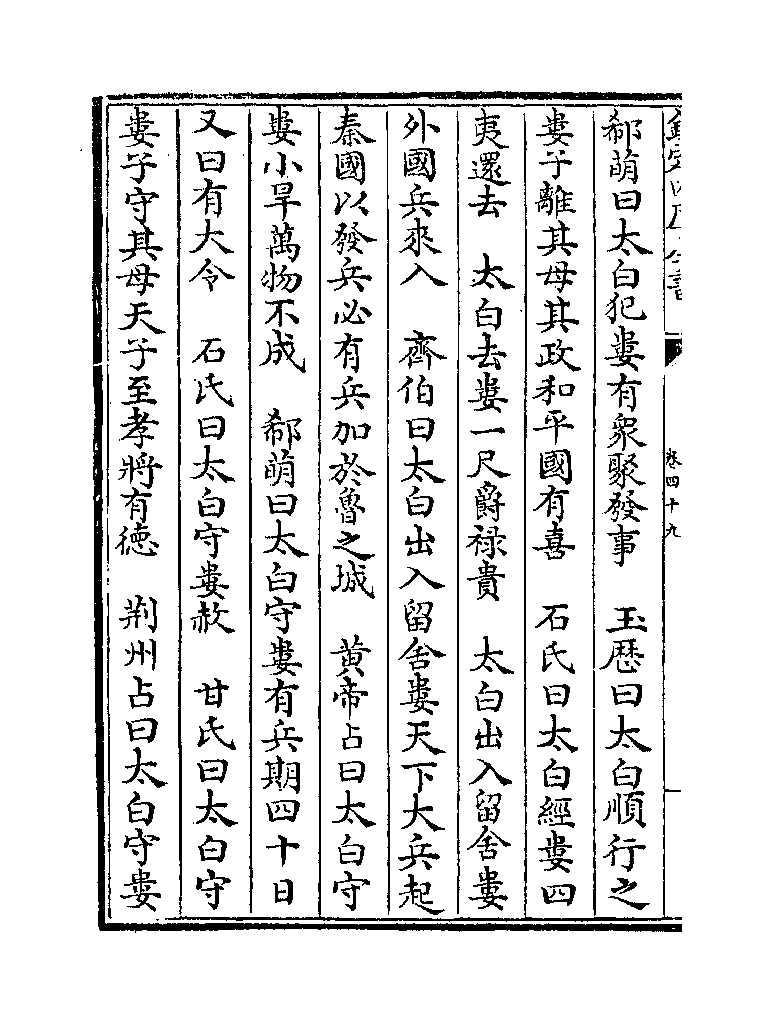 欽定四庫全書
卷四十九
郗萌曰太白犯婁有衆聚發事　玉厯曰太白順行之
婁子離其母其政和平國有喜　石氏曰太白經婁四
夷還去　太白去婁一尺爵禄貴　太白出入留舍婁
外國兵來入　齊伯曰太白出入留舍婁天下大兵起
秦國以發兵必有兵加於魯之城　黄帝占曰太白守
婁小旱萬物不成　郗萌曰太白守婁有兵期四十日
又曰有大令　石氏曰太白守婁赦　甘氏曰太白守
婁子守其母天子至孝將有徳　荆州占曰太白守婁